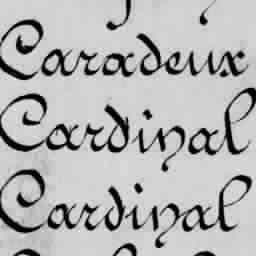 Caradeux
Cardinal
Cardinal